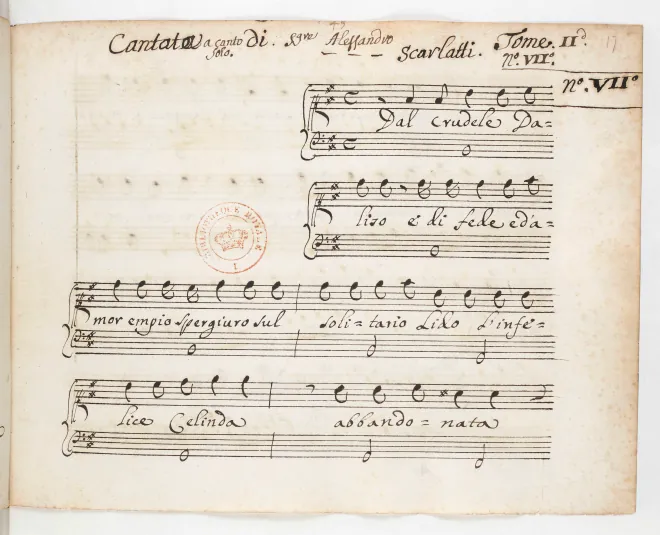 Cantata a canto solo. Di. Sgre Alessandro Scarlatti. Tome. IId. 17
No. VIIo.
No. VIIo
Dal crudele Da=
liso e di fede ed'a=
mor empio spergiuro sul soli=tario Lido L'infe=
lice Celinda abbando=nata